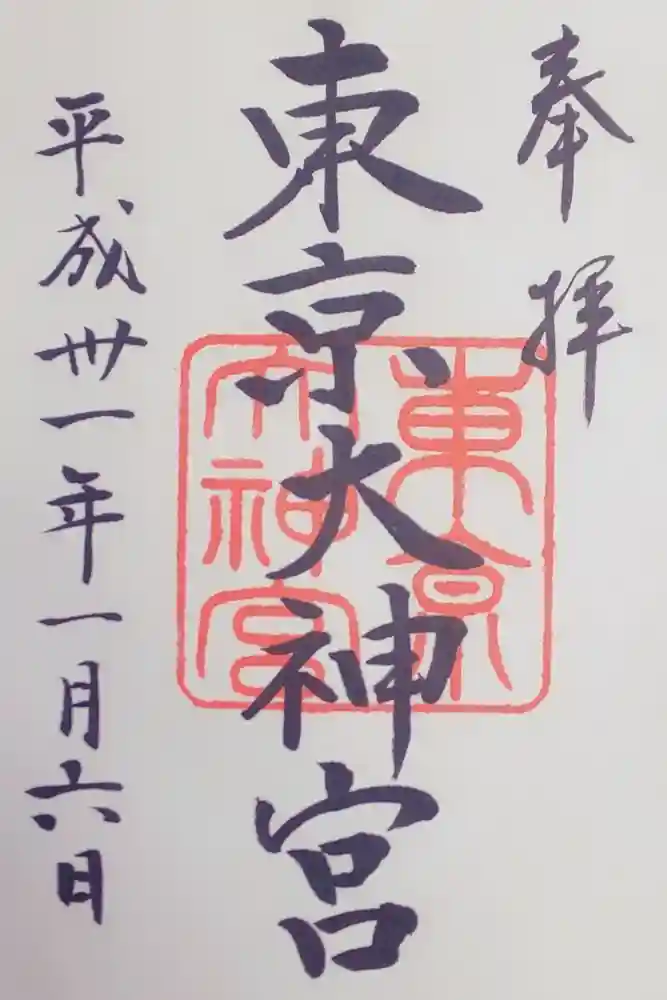 奉拝
東京大神宮
東京
大神宮
平成卅一年一月六日